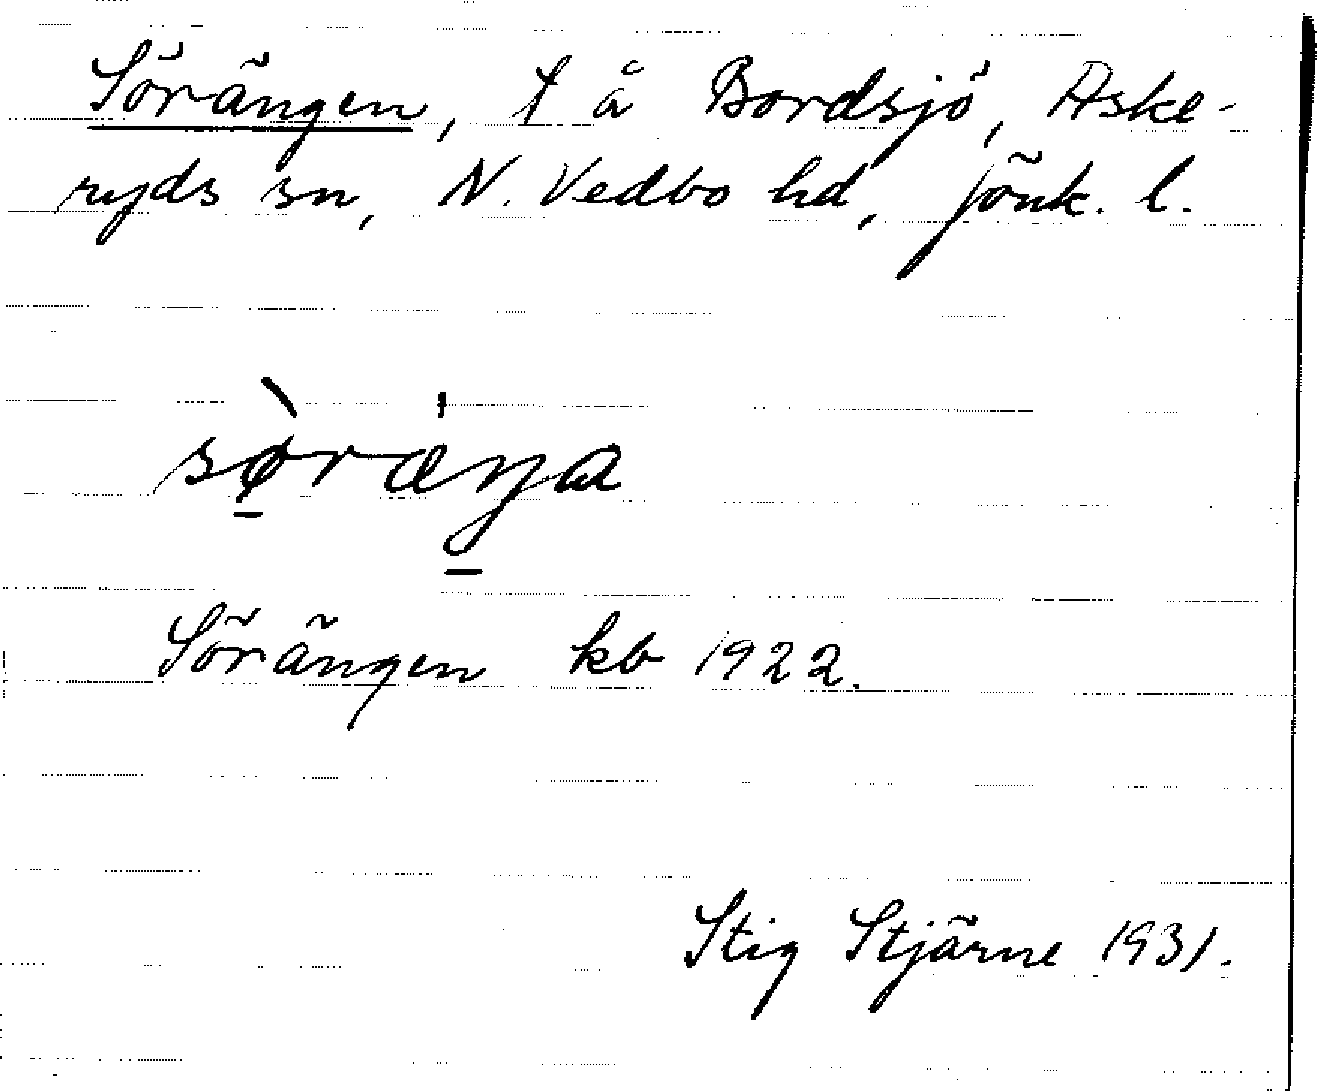 Sörängen, t å Bordsjö, Aske-
ryds sn, N. Vedbo hd, Jönk. l.
sø̠̀ræ̍ŋ̠a
Sörängen kb 1922.
Stig Stjärne 1931.